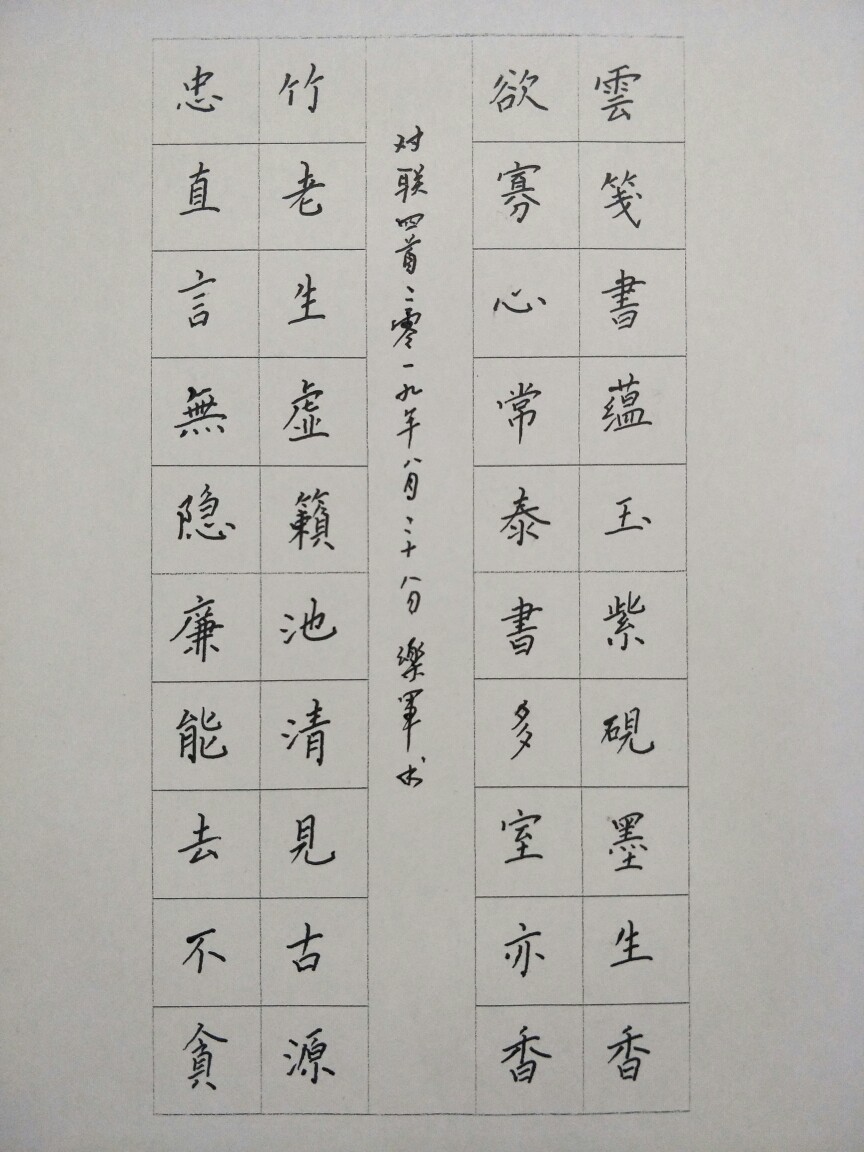 雲箋書蘊玉紫硯墨生香
欲寡心常泰書多室亦香
对联四首二零一九年八月二十八日 樂軍书
竹老生虛籟池清見古源
忠直言無隐廉能去不貪